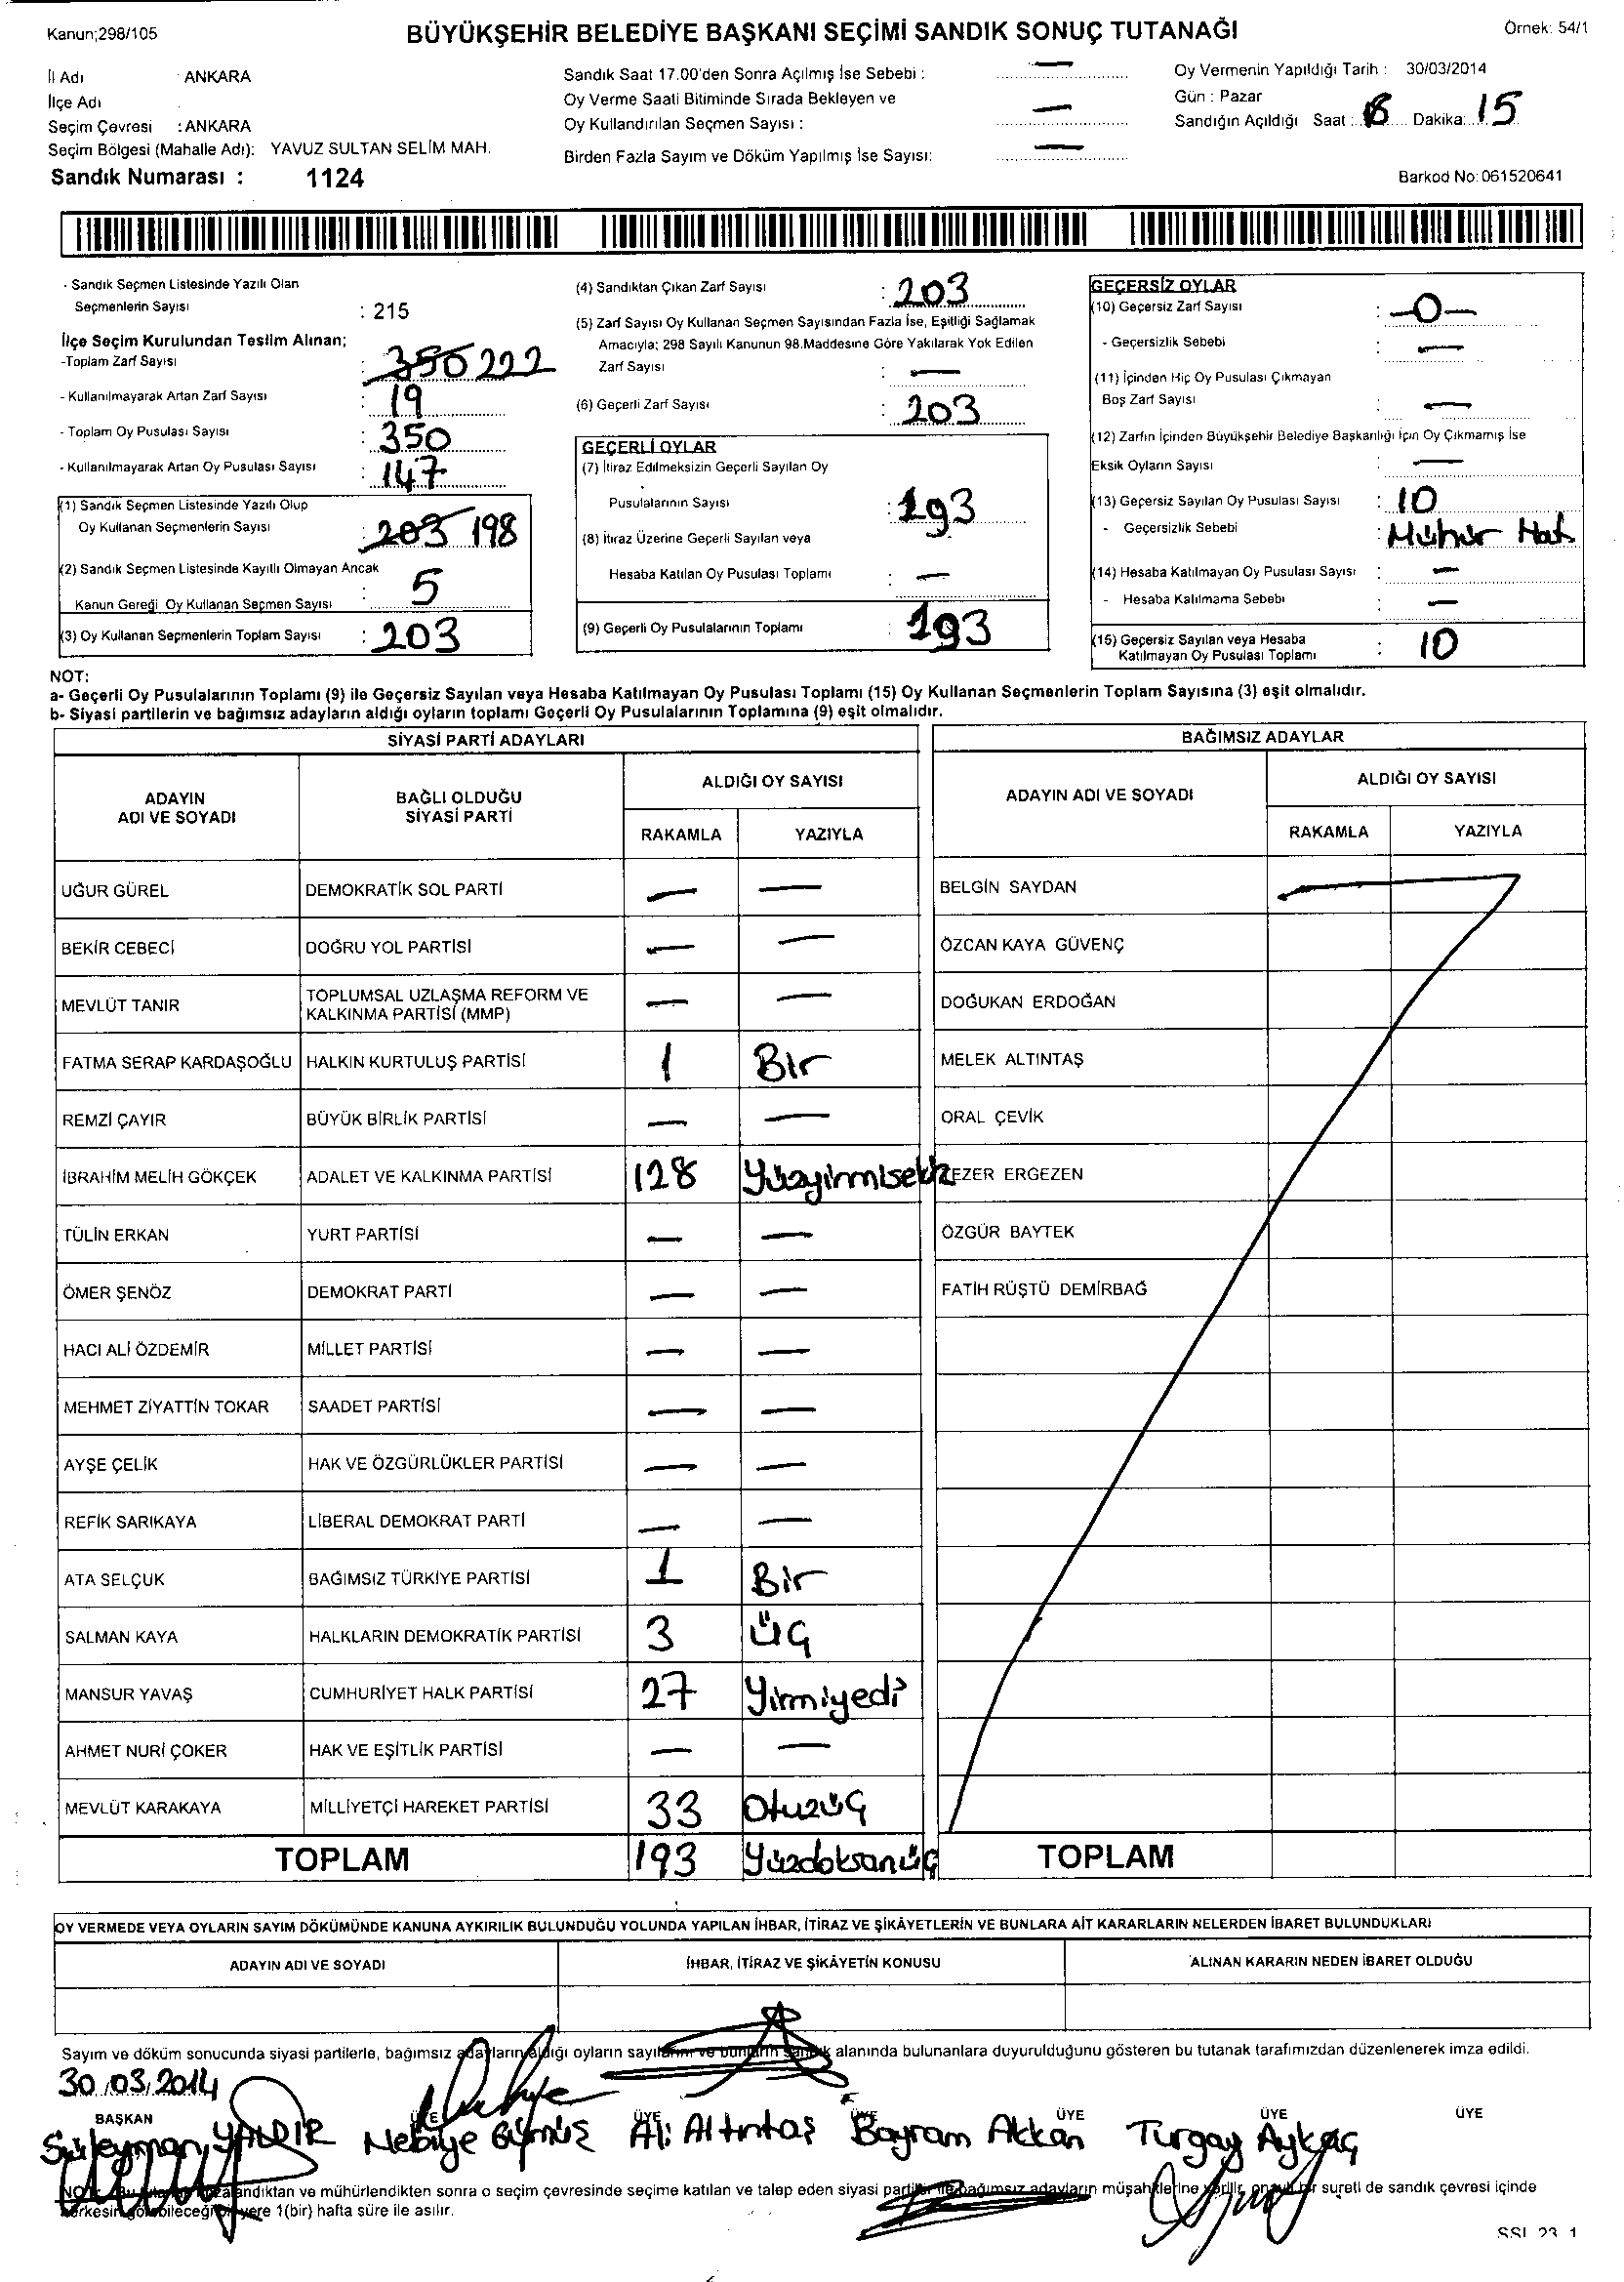 Kanun;298/105
BÜYÜKŞEHİR BELEDİYE BAŞKANI SEÇİMİ SANDIK SONUÇ TUTANAĞI
Örnek: 54/1
İl Adı : ANKARA
İlçe Adı :
Seçim Çevresi : ANKARA
Seçim Bölgesi (Mahalle Adı): YAVUZ SULTAN SELİM MAH.
Sandık Numarası : 1124
Sandık Saat 17.00'den Sonra Açılmış İse Sebebi : —
Oy Verme Saati Bitiminde Sırada Bekleyen ve
Oy Kullandırılan Seçmen Sayısı : —
Birden Fazla Sayım ve Döküm Yapılmış İse Sayısı: —
Oy Vermenin Yapıldığı Tarih : 30/03/2014
Gün : Pazar
Sandığın Açıldığı Saat : Dakika: 15
Barkod No: 061520641
- Sandık Seçmen Listesinde Yazılı Olan
Seçmenlerin Sayısı : 215
İlçe Seçim Kurulundan Teslim Alınan;
-Toplam Zarf Sayısı : 350 222
- Kullanılmayarak Artan Zarf Sayısı : 19
- Toplam Oy Pusulası Sayısı : 350
- Kullanılmayarak Artan Oy Pusulası Sayısı : 147
(1) Sandık Seçmen Listesinde Yazılı Olup
Oy Kullanan Seçmenlerin Sayısı : 203 198
(2) Sandık Seçmen Listesinde Kayıtlı Olmayan Ancak
Kanun Gereği Oy Kullanan Seçmen Sayısı : 5
(3) Oy Kullanan Seçmenlerin Toplam Sayısı : 203
(4) Sandıktan Çıkan Zarf Sayısı : 203
(5) Zarf Sayısı Oy Kullanan Seçmen Sayısından Fazla İse, Eşitliği Sağlamak
Amacıyla; 298 Sayılı Kanunun 98.Maddesine Göre Yakılarak Yok Edilen
Zarf Sayısı : —
(6) Geçerli Zarf Sayısı : 203
GEÇERLİ OYLAR
(7) İtiraz Edilmeksizin Geçerli Sayılan Oy
Pusulalarının Sayısı : 193
(8) İtiraz Üzerine Geçerli Sayılan veya
Hesaba Katılan Oy Pusulası Toplamı : —
(9) Geçerli Oy Pusulalarının Toplamı : 193
GEÇERSİZ OYLAR
(10) Geçersiz Zarf Sayısı : —0—
- Geçersizlik Sebebi : —
(11) İçinden Hiç Oy Pusulası Çıkmayan
Boş Zarf Sayısı : —
(12) Zarfın İçinden Büyükşehir Belediye Başkanlığı İçin Oy Çıkmamış İse
Eksik Oyların Sayısı : —
(13) Geçersiz Sayılan Oy Pusulası Sayısı : 10
- Geçersizlik Sebebi : Mühür Hat
(14) Hesaba Katılmayan Oy Pusulası Sayısı : —
- Hesaba Katılmama Sebebi : —
(15) Geçersiz Sayılan veya Hesaba
Katılmayan Oy Pusulası Toplamı : 10
NOT:
a- Geçerli Oy Pusulalarının Toplamı (9) ile Geçersiz Sayılan veya Hesaba Katılmayan Oy Pusulası Toplamı (15) Oy Kullanan Seçmenlerin Toplam Sayısına (3) eşit olmalıdır.
b- Siyasi partilerin ve bağımsız adayların aldığı oyların toplamı Geçerli Oy Pusulalarının Toplamına (9) eşit olmalıdır.
SİYASİ PARTİ ADAYLARI
ADAYIN ADI VE SOYADI | BAĞLI OLDUĞU SİYASİ PARTİ | ALDIĞI OY SAYISI
RAKAMLA | YAZIYLA
UĞUR GÜREL | DEMOKRATİK SOL PARTİ | — | —
BEKİR CEBECİ | DOĞRU YOL PARTİSİ | — | —
MEVLÜT TANIR | TOPLUMSAL UZLAŞMA REFORM VE KALKINMA PARTİSİ (MMP) | — | —
FATMA SERAP KARDAŞOĞLU | HALKIN KURTULUŞ PARTİSİ | 1 | Bir
REMZİ ÇAYIR | BÜYÜK BİRLİK PARTİSİ | — | —
İBRAHİM MELİH GÖKÇEK | ADALET VE KALKINMA PARTİSİ | 128 | Yüzyirmisekiz
TÜLİN ERKAN | YURT PARTİSİ | — | —
ÖMER ŞENÖZ | DEMOKRAT PARTİ | — | —
HACI ALİ ÖZDEMİR | MİLLET PARTİSİ | — | —
MEHMET ZİYATTİN TOKAR | SAADET PARTİSİ | — | —
AYŞE ÇELİK | HAK VE ÖZGÜRLÜKLER PARTİSİ | — | —
REFİK SARIKAYA | LİBERAL DEMOKRAT PARTİ | — | —
ATA SELÇUK | BAĞIMSIZ TÜRKİYE PARTİSİ | 1 | Bir
SALMAN KAYA | HALKLARIN DEMOKRATİK PARTİSİ | 3 | üç
MANSUR YAVAŞ | CUMHURİYET HALK PARTİSİ | 27 | Yirmiyedi
AHMET NURİ ÇOKER | HAK VE EŞİTLİK PARTİSİ | — | —
MEVLÜT KARAKAYA | MİLLİYETÇİ HAREKET PARTİSİ | 33 | Otuzüç
TOPLAM | 193 | Yüzdoksanüç
BAĞIMSIZ ADAYLAR
ADAYIN ADI VE SOYADI | ALDIĞI OY SAYISI
RAKAMLA | YAZIYLA
BELGİN SAYDAN
ÖZCAN KAYA GÜVENÇ
DOĞUKAN ERDOĞAN
MELEK ALTINTAŞ
ORAL ÇEVİK
EZER ERGEZEN
ÖZGÜR BAYTEK
FATİH RÜŞTÜ DEMİRBAĞ
TOPLAM
OY VERMEDE VEYA OYLARIN SAYIM DÖKÜMÜNDE KANUNA AYKIRILIK BULUNDUĞU YOLUNDA YAPILAN İHBAR, İTİRAZ VE ŞİKÂYETLERİN VE BUNLARA AİT KARARLARIN NELERDEN İBARET BULUNDUKLARI
ADAYIN ADI VE SOYADI | İHBAR, İTİRAZ VE ŞİKÂYETİN KONUSU | ALINAN KARARIN NEDEN İBARET OLDUĞU
Sayım ve döküm sonucunda siyasi partilerle, bağımsız adayların aldığı oyların sayılarını ve bunların sandık alanında bulunanlara duyurulduğunu gösteren bu tutanak tarafımızdan düzenlenerek imza edildi.
30.03.2014
BAŞKAN ÜYE ÜYE ÜYE ÜYE ÜYE ÜYE
Süleyman YALDIR Nebiye Ali Altıntaş Bayram Akkan Turgay Aykaç
andıktan ve mühürlendikten sonra o seçim çevresinde seçime katılan ve talep eden siyasi partiler ile bağımsız adayların müşahitlerine verilir, onaylı bir sureti de sandık çevresi içinde
herkesin görebileceği bir yere 1(bir) hafta süre ile asılır.